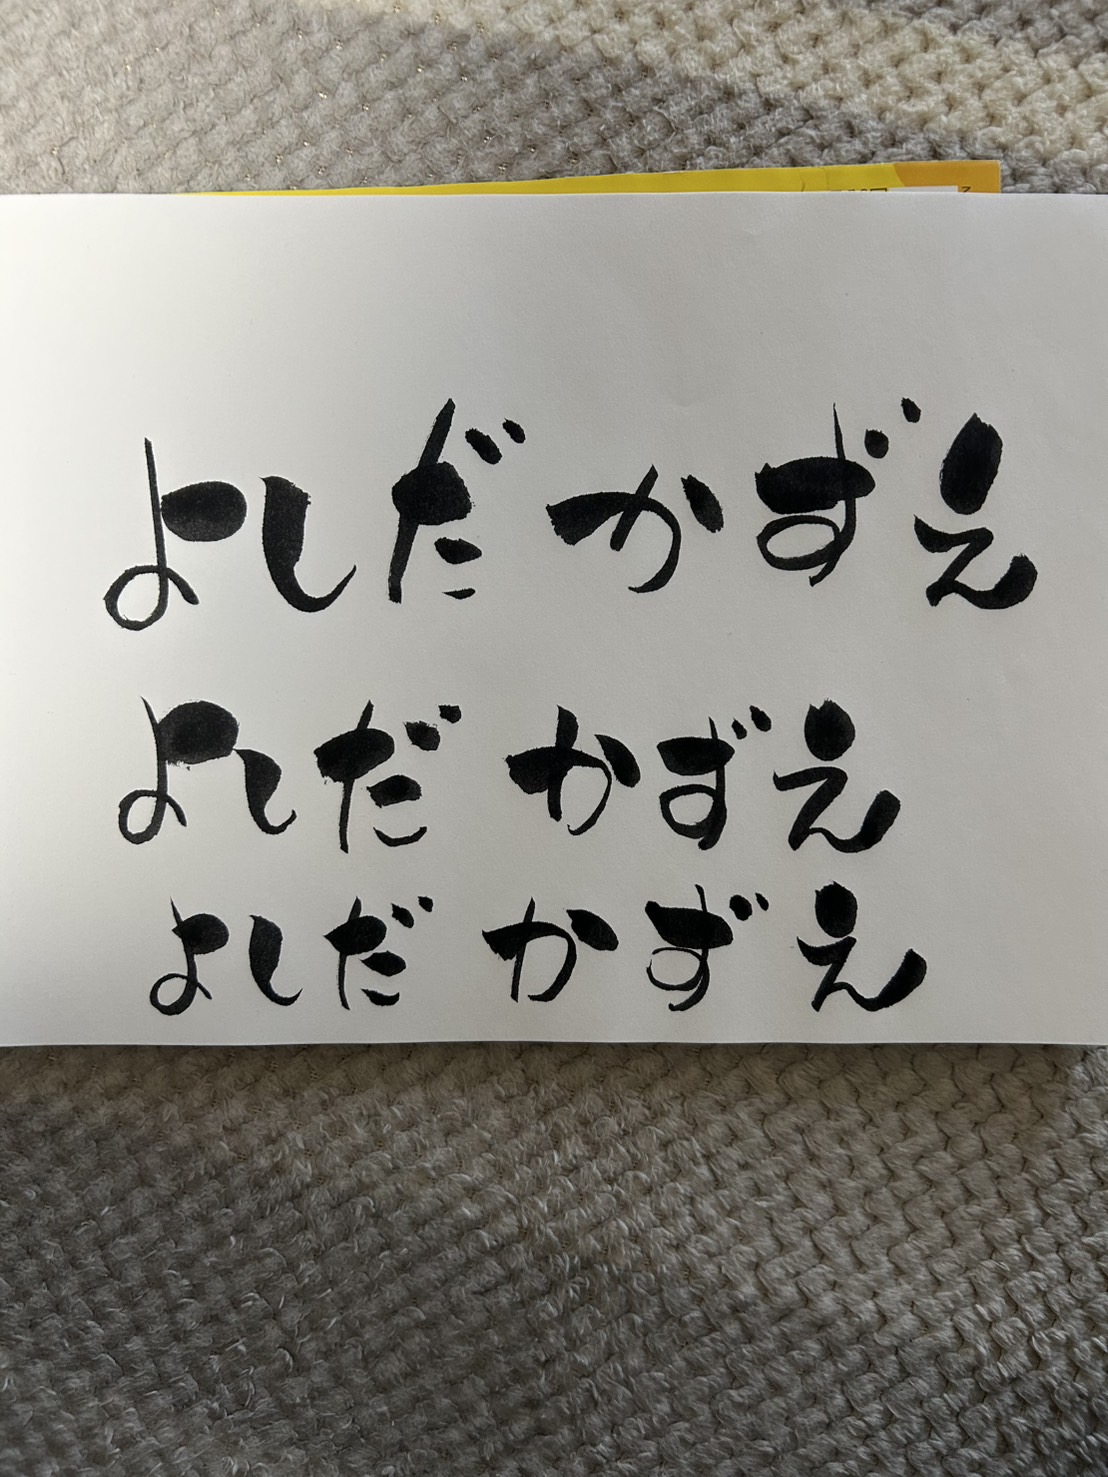 よしだ かずえ
よしだ かずえ
よしだ かずえ